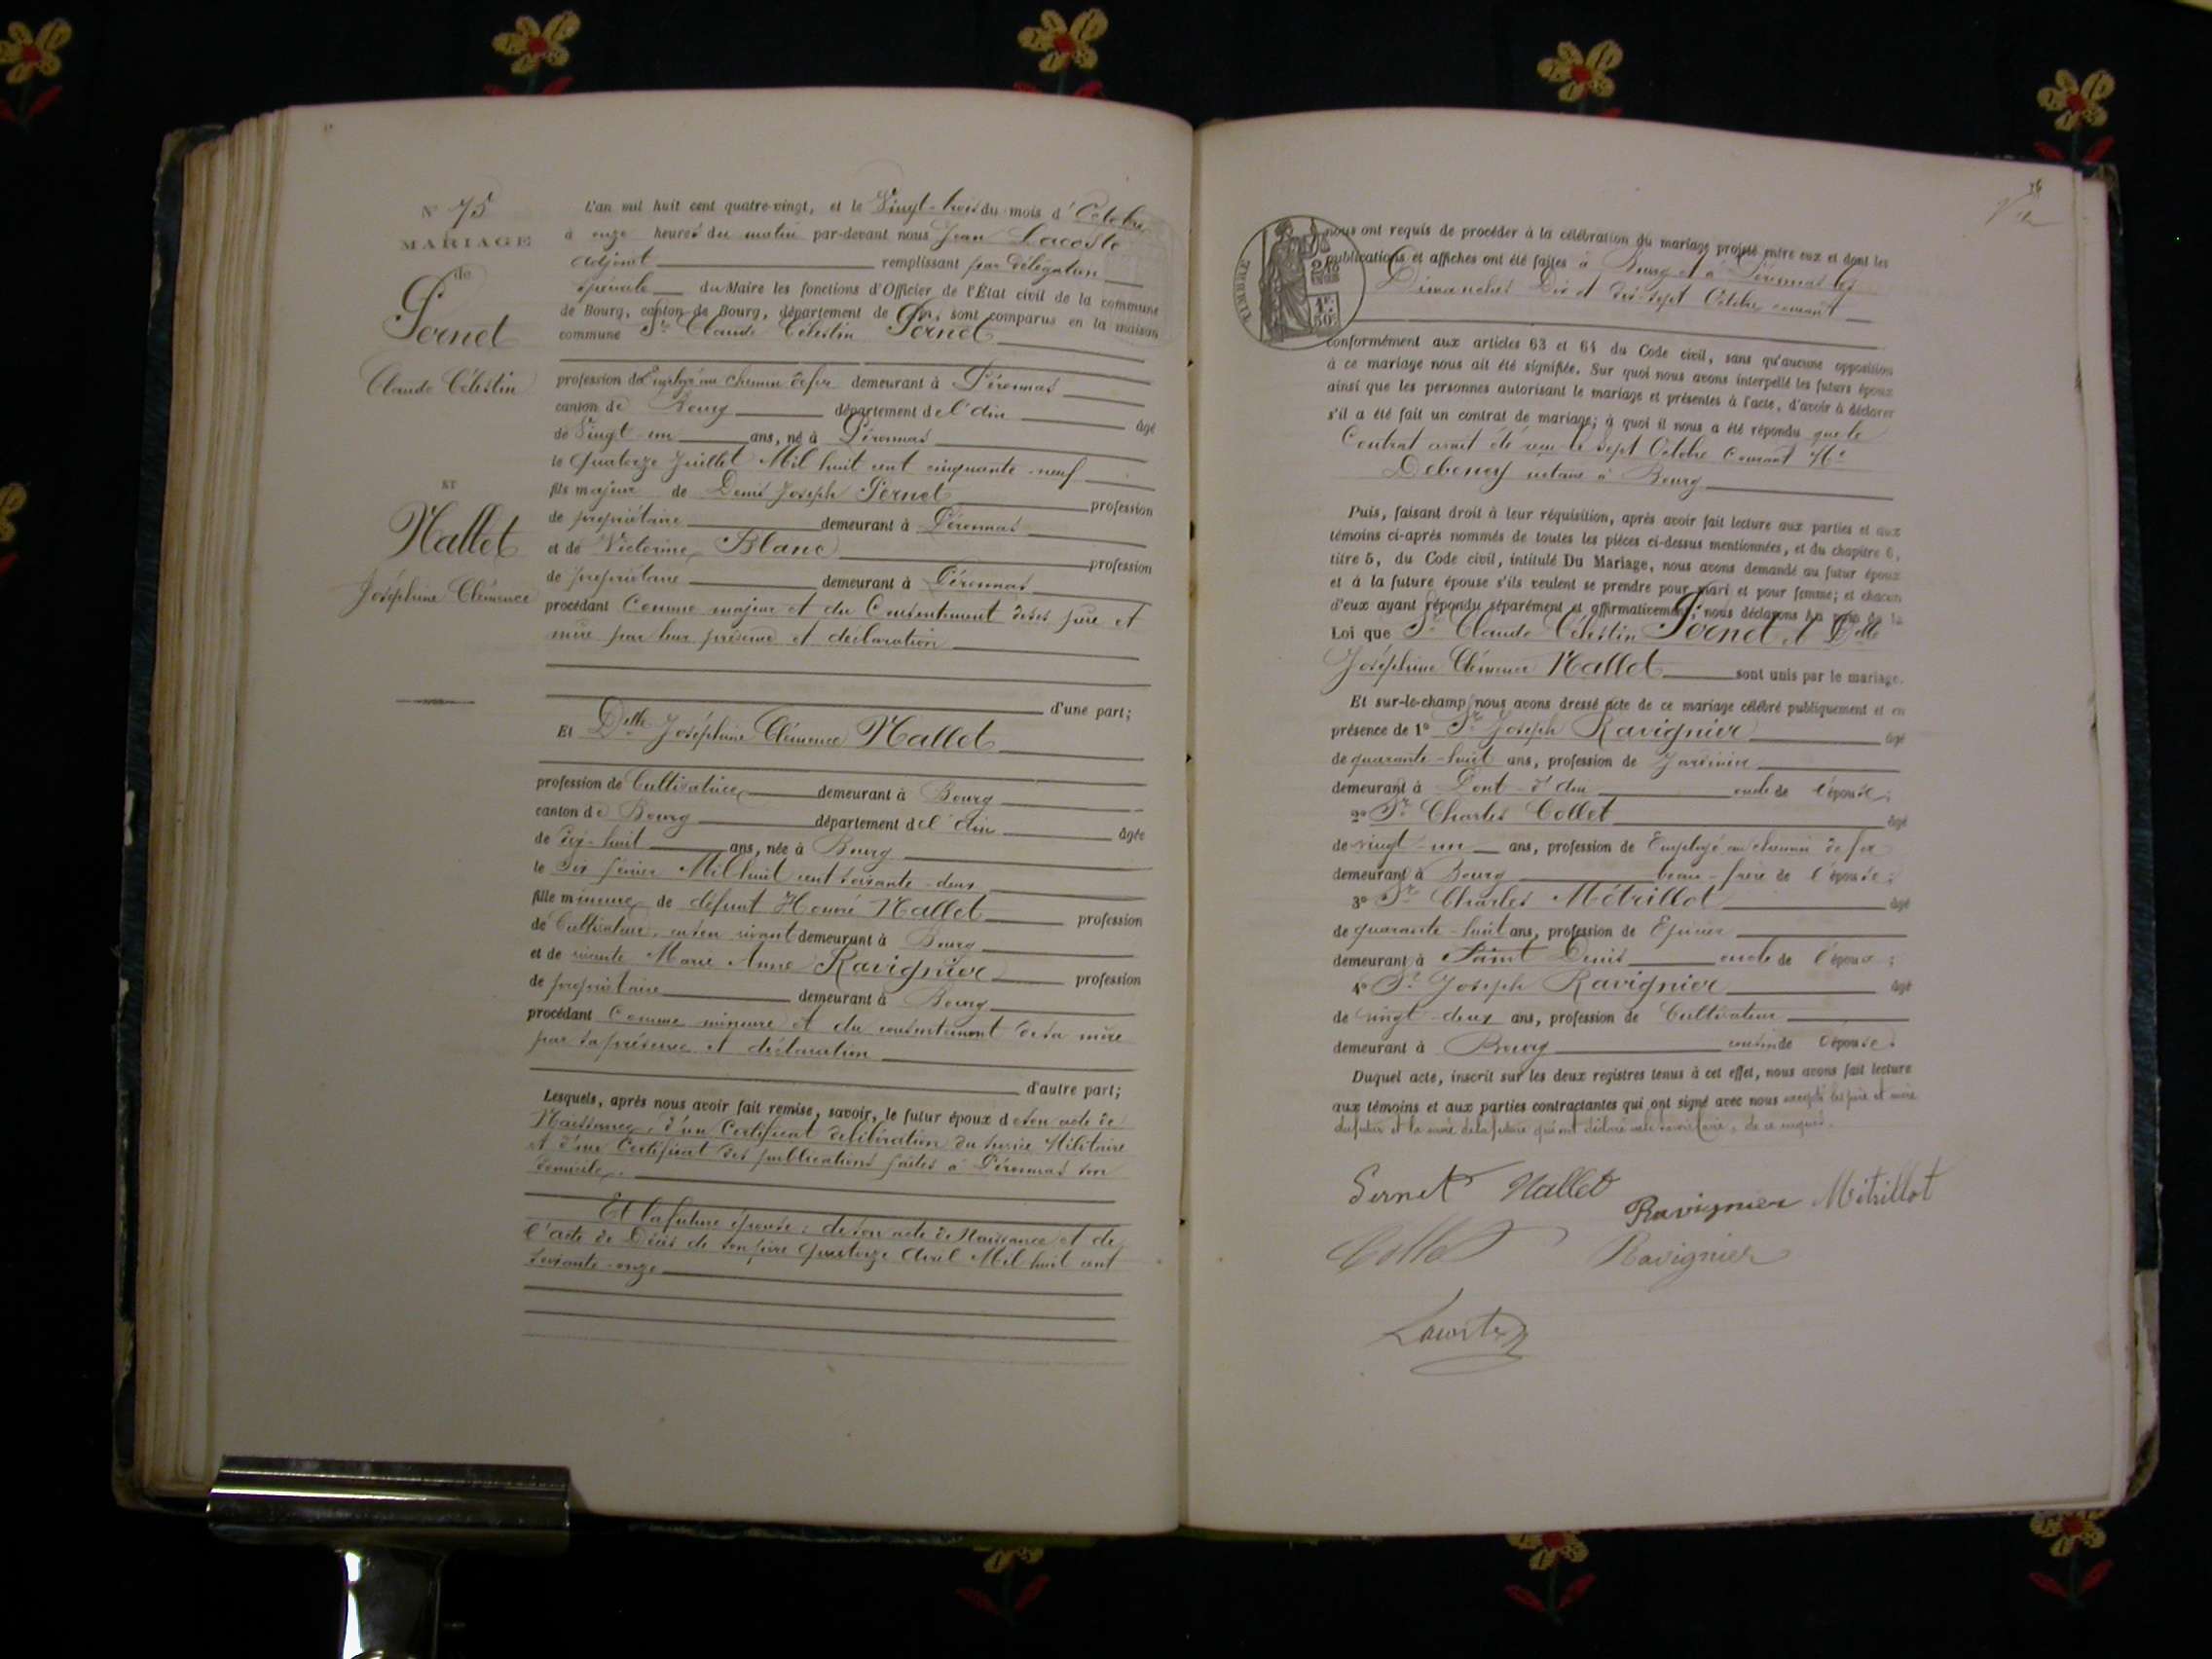 N° 75
MARIAGE
de
Pernet
Claude Célestin
ET
Nallet
Joséphine Clémence
L'an mil huit cent quatre-vingt, et le Vingt-trois du mois d'Octobre
à onze heures du matin par-devant nous Jean Lacoste
adjoint remplissant par délégation
spéciale du Maire les fonctions d'Officier de l'État civil de la commune
de Bourg, canton de Bourg, département de l'Ain, sont comparus en la maison
commune Sr Claude Célestin Pernet
profession d'Employé au chemin de fer demeurant à Péronnas
canton de Bourg département de l'Ain âgé
de Vingt-un ans, né à Péronnas
le quatorze Juillet Mil huit cent cinquante-neuf
fils majeur de Denis Joseph Pernet profession
de propriétaire demeurant à Péronnas
et de Victorine Blanc profession
de propriétaire demeurant à Péronnas
procédant Comme majeur et du Consentement de ses père et
mère par leur présence et déclaration
d'une part;
Et Delle Joséphine Clémence Nallet
profession de Cultivatrice demeurant à Bourg
canton de Bourg département de l'Ain âgée
de dix-huit ans, née à Bourg
le Six février Mil huit cent soixante-deux
fille mineure de défunt Honoré Nallet profession
de Cultivateur, en son vivant demeurant à Bourg
et de vivante Marie Anne Ravignier profession
de propriétaire demeurant à Bourg
procédant Comme mineure et du consentement de sa mère
par sa présence et déclaration
d'autre part;
Lesquels, après nous avoir fait remise, savoir, le futur époux de son acte de
Naissance, d'un Certificat de libération du service Militaire
et d'un Certificat des publications faites à Péronnas son
domicile.
Et la future épouse: de son acte de Naissance et de
l'acte de Décès de son père quatorze Avril Mil huit cent
soixante-onze
TIMBRE
2/10
1F.
50C.
nous ont requis de procéder à la célébration du mariage projeté entre eux et dont les
publications et affiches ont été faites à Bourg et à Péronnas les
Dimanches Dix et dix-sept Octobre courant
conformément aux articles 63 et 64 du Code civil, sans qu'aucune opposition
à ce mariage nous ait été signifiée. Sur quoi nous avons interpellé les futurs époux
ainsi que les personnes autorisant le mariage et présentes à l'acte, d'avoir à déclarer
s'il a été fait un contrat de mariage; à quoi il nous a été répondu que le
Contrat avait été reçu le sept Octobre Courant Me
Debeney notaire à Bourg
Puis, faisant droit à leur réquisition, après avoir fait lecture aux parties et aux
témoins ci-après nommés de toutes les pièces ci-dessus mentionnées, et du chapitre 6,
titre 5, du Code civil, intitulé Du Mariage, nous avons demandé au futur époux
et à la future épouse s'ils veulent se prendre pour mari et pour femme; et chacun
d'eux ayant répondu séparément et affirmativement, nous déclarons au nom de la
Loi que Sr Claude Célestin Pernet et Delle
Joséphine Clémence Nallet sont unis par le mariage.
Et sur-le-champ nous avons dressé acte de ce mariage célébré publiquement et en
présence de 1° Sr Joseph Ravignier âgé
de quarante-huit ans, profession de Jardinier
demeurant à Pont-d'Ain oncle de l'épouse;
2° Sr Charles Collet âgé
de vingt-un ans, profession de Employé au chemin de fer
demeurant à Bourg beau-frère de l'épouse;
3° Sr Charles Métrillot âgé
de quarante-huit ans, profession de Epicier
demeurant à Saint Denis oncle de l'époux;
4° Sr Joseph Ravignier âgé
de vingt-deux ans, profession de Cultivateur
demeurant à Bourg cousin de l'épouse.
Duquel acte, inscrit sur les deux registres tenus à cet effet, nous avons fait lecture
aux témoins et aux parties contractantes qui ont signé avec nous excepté les père et mère
du futur et la mère de la future qui ont déclaré ne le savoir faire, de ce enquis.
Pernet Nallet Ravignier Métrillot
Collet Ravignier
Lacoste